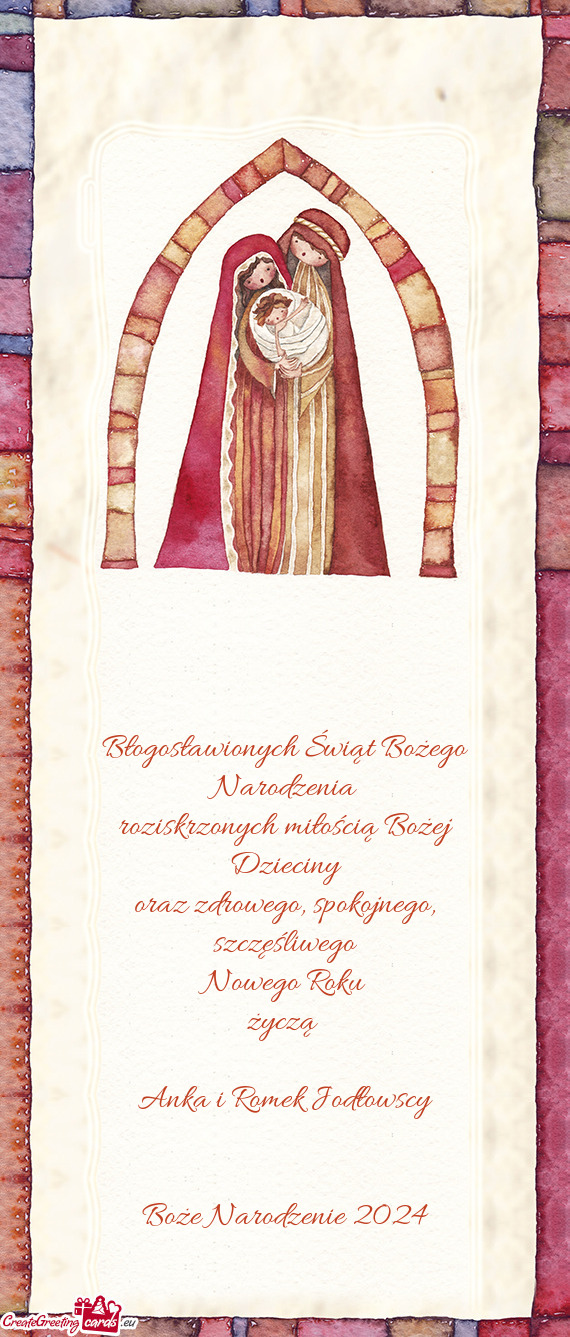 Błogosławionych Świąt Bożego
Narodzenia
roziskrzonych miłością Bożej
Dzieciny
oraz zdrowego, spokojnego,
szczęśliwego
Nowego Roku
życzą
Anka i Romek Jodłowscy
Boże Narodzenie 2024
CreateGreeting cards .eu